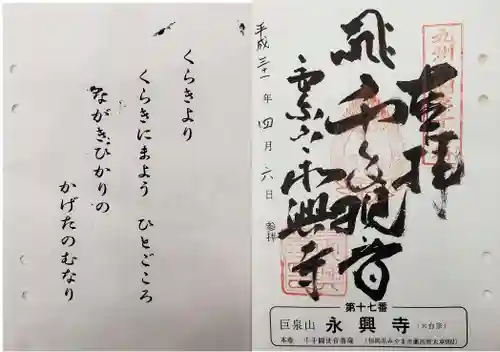 くらきより
くらきにまよう ひとごころ
ながきひかりの
かげたのむなり
奉拝
千手観音
永興寺
平成三十一年四月六日 参拝
第十七番
巨泉山 永興寺 (天台宗)
本尊 千手観世音菩薩